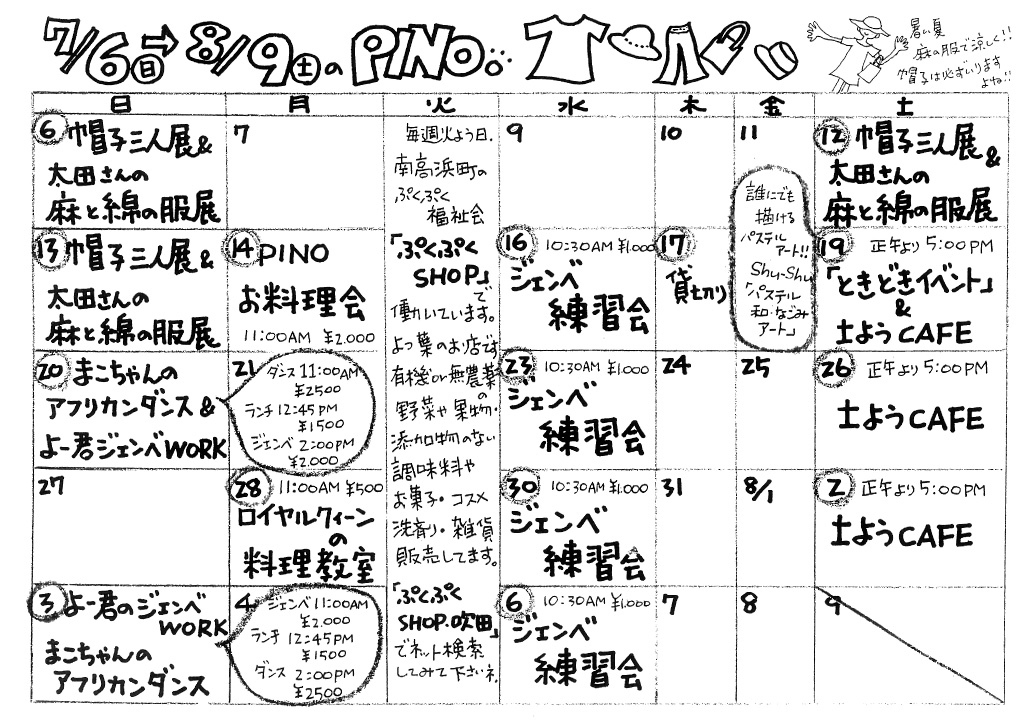 7/6(日)⇨8/9(土)のPINO
暑い夏
麻の服で涼しく!!
帽子は必ずいります
よね!!
日 月 火 水 木 金 土
6 帽子三人展&
太田さんの
麻と綿の服展
7
毎週火よう日、
南高浜町の
ぷくぷく
福祉会
「ぷくぷく
SHOP」
で
働いています。
よつ葉のお店です
有機or無農薬
の
野菜や果物・
添加物のない
調味料や
お菓子・コスメ
洗剤・雑貨
販売してます。
「ぷくぷく
SHOP.吹田」
でネット検索
してみて下さいネ
9
10
11
誰にでも
描ける
パステル
アート!!
Shu-Shu
「パステル
和・なごみ
アート」
12 帽子三人展&
太田さんの
麻と綿の服展
13 帽子三人展&
太田さんの
麻と綿の服展
14 PINO
お料理会
11:00AM ¥2.000
16 10:30AM ¥1.000
ジェンベ
練習会
17
貸切り
19 正午より5:00PM
「ときどきイベント」
&
土ようCAFE
20 まこちゃんの
アフリカンダンス&
よー君ジェンベWORK
21
ダンス 11:00AM
¥2500
ランチ 12:45PM
¥1500
ジェンベ 2:00PM
¥2.000
23 10:30AM ¥1.000
ジェンベ
練習会
24
25
26 正午より5:00PM
土ようCAFE
27
28 11:00AM ¥500
ロイヤルクィーン
の
料理教室
30 10:30AM ¥1.000
ジェンベ
練習会
31
8/1
2 正午より5:00PM
土ようCAFE
3 よー君のジェンベ
WORK
まこちゃんの
アフリカンダンス
4
ジェンベ 11:00AM
¥2.000
ランチ 12:45PM
¥1500
ダンス 2:00PM
¥2500
6 10:30AM ¥1.000
ジェンベ
練習会
7
8
9